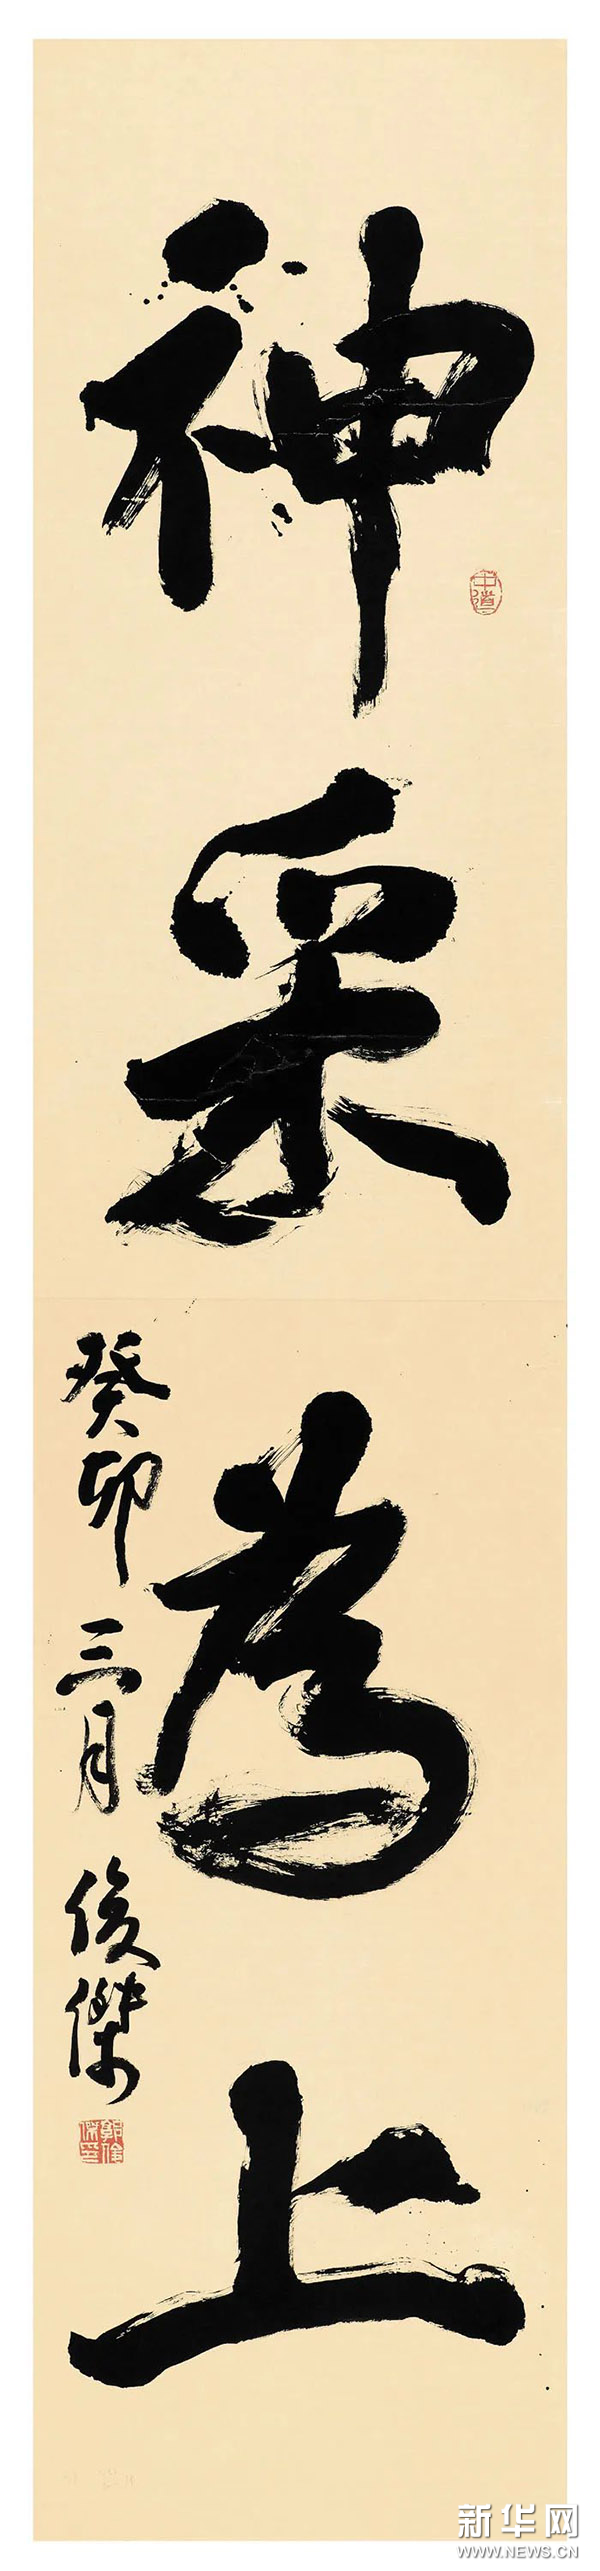 神采為上
癸卯三月俊傑
中道
郭俊傑印
新华网
WWW.NEWS.CN